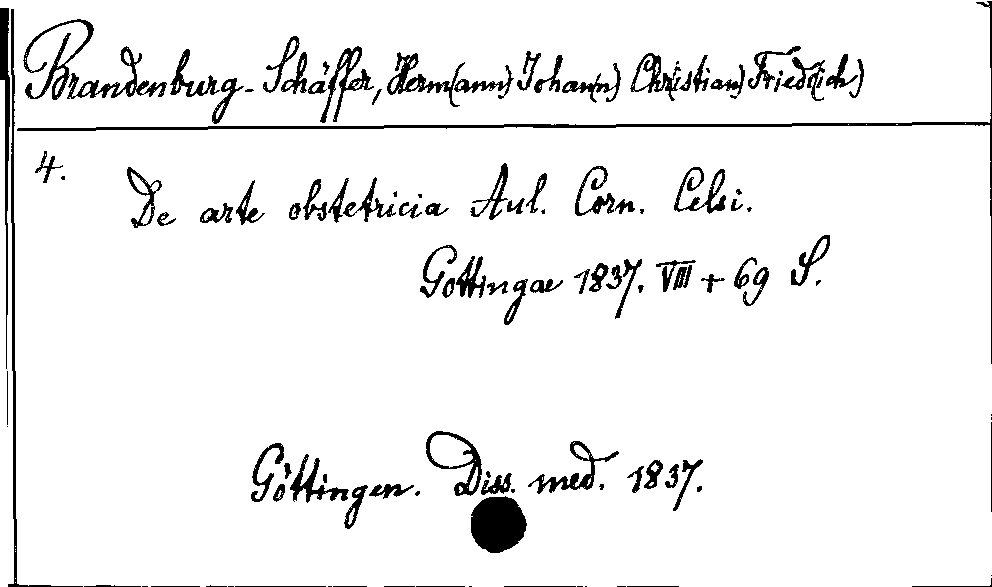 Brandenburg-Schäffer, Herm(ann) Johan(n) Chr(istian) Fried(rich)
4.
De arte obstetricia Aul. Corn. Celsi.
Gottingae 1837. VIII + 69 S.
Göttingen. Diss. med. 1837.